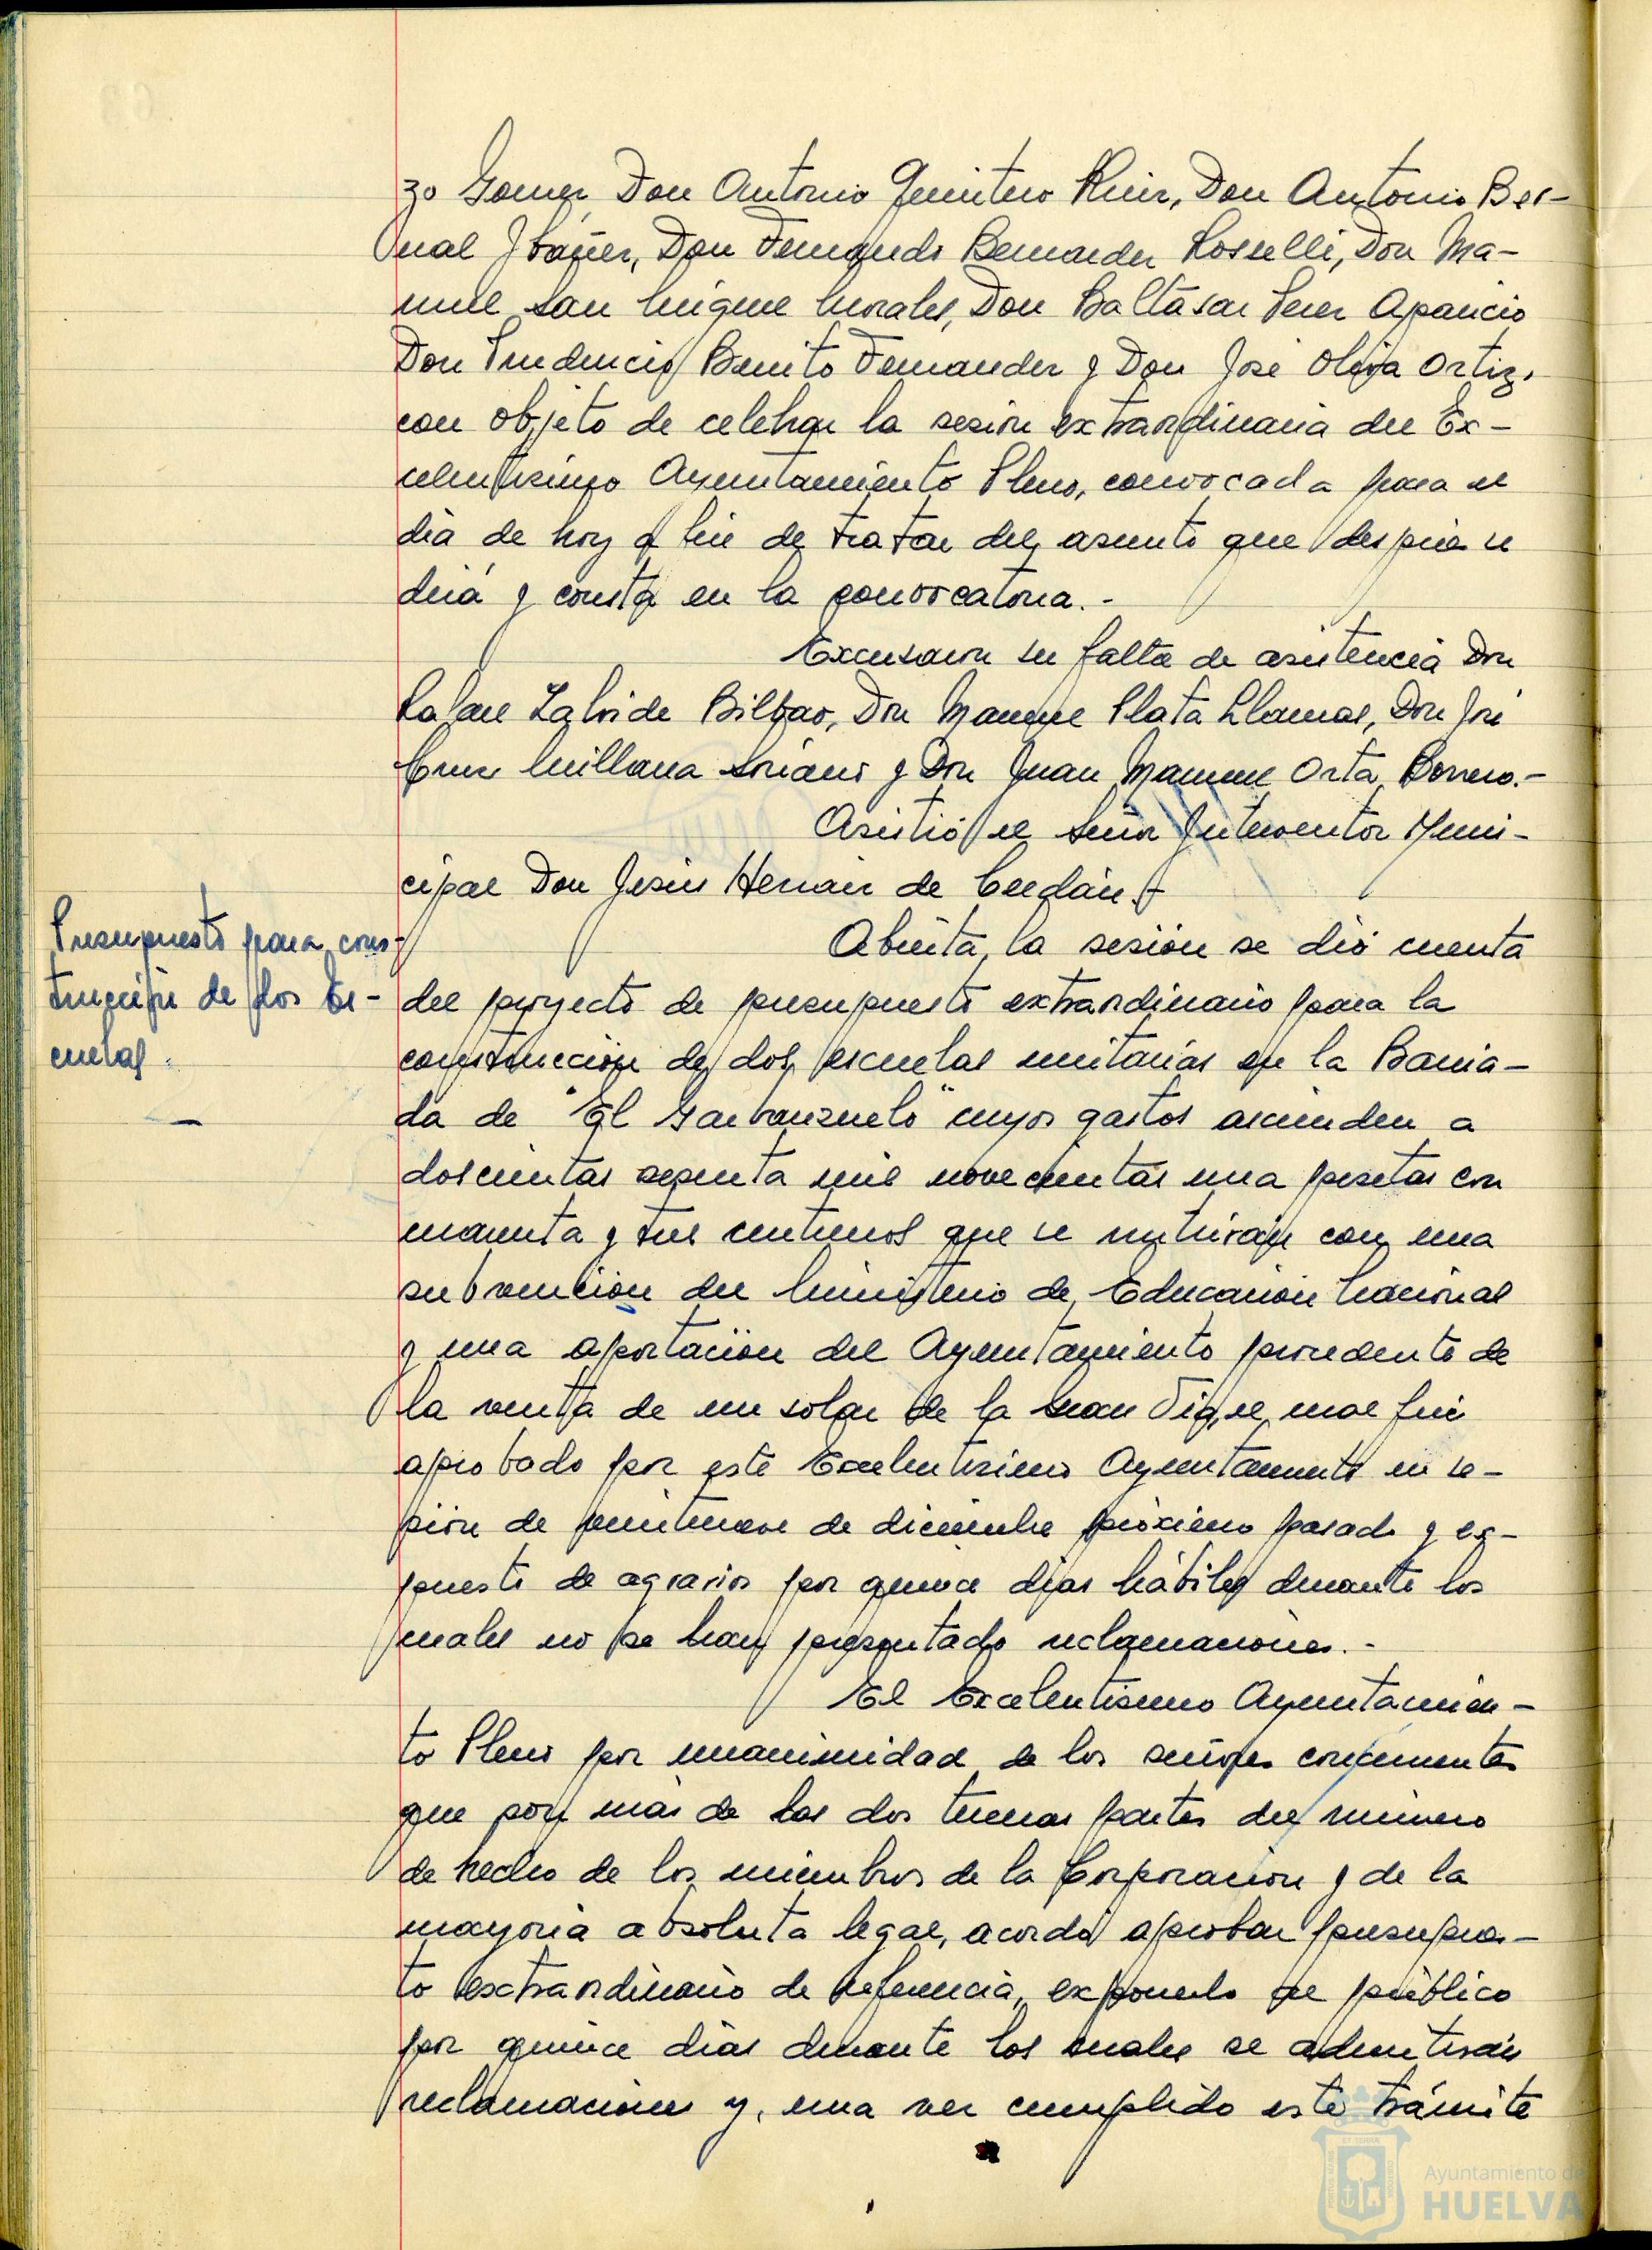 zo Gomez, Don Antonio Quintero Ruiz, Don Antonio Ber-
nal Ybañez, Don Fernando Bernardez Rosselli, Don Ma-
nuel San Miguel Morales, Don Baltasar Perez Aparicio
Don Prudencio Benito Fernandez y Don José Oliva Ortiz,
con objeto de celebrar la sesión extraordinaria del Ex-
celentísimo Ayuntamiento Pleno, convocada para el
día de hoy a fin de tratar del asunto que despues se
dirá y consta en la convocatoria.-
Excusaron su falta de asistencia Don
Rafael Zalvide Bilbao, Don Manuel Plata Llamas, Don José
Cruz Millana Soriano y Don Juan Manuel Orta Borrero.-
Asistió el Señor Interventor Muni-
cipal Don Jesús Hernair de Cerdán.-
Presupuesto para cons-
trucción de dos Es-
cuelas.
Abierta la sesión se dió cuenta
del proyecto de presupuesto extraordinario para la
construcción de dos escuelas unitarias en la Barria-
da de "El Garbanzuelo" cuyos gastos ascienden a
doscientas sesenta mil novecientas una pesetas con
cuarenta y tres centimos que se nutrirán con una
subvención del Ministerio de Educación Nacional
y una aportación del Ayuntamiento procedente de
la venta de un solar de la Gran Via, el cual fué
aprobado por este Excelentísimo Ayuntamiento en se-
sión de veintinueve de diciembre próximo pasado y ex-
puesto de agravios por quince días hábiles durante los
cuales no se han presentado reclamaciones.-
El Excelentísimo Ayuntamien-
to Pleno por unanimidad de los señores concurrentes
que son más de las dos terceras partes del número
de hecho de los miembros de la Corporación y de la
mayoría absoluta legal, acordó aprobar presupues-
to extraordinario de referencia, exponerlo al público
por quince días durante los cuales se admitirán
reclamaciones y, una vez cumplido este trámite
Ayuntamiento de
HUELVA